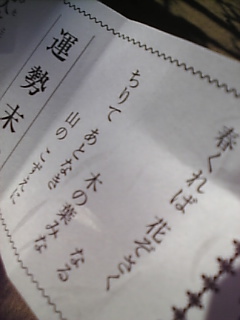 春くれば 花ぞさく
なる
木の葉みな
ちりて あとなき
山の こずゑに
運勢 末